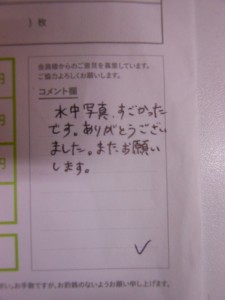 ）枚
会員様からのご意見を募集しています。
ご協力よろしくお願いします。
コメント欄
水中写真、すごかった
です。ありがとうござい
ました。またお願い
します。
円
さい。お手数ですが、お釣銭のないようお願い申し上げます。